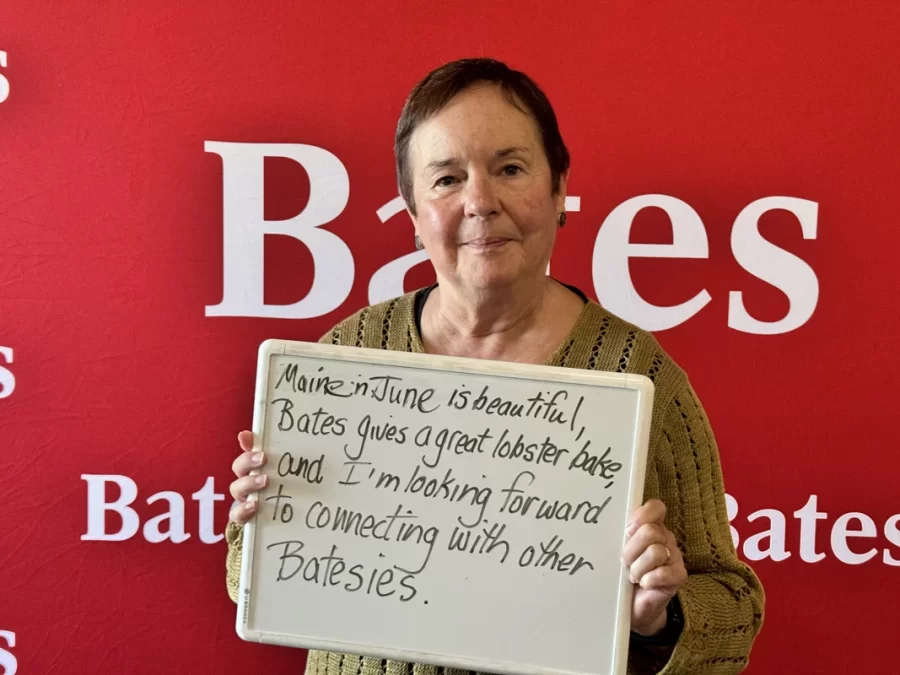 s
Bates
s
Maine in June is beautiful,
Bates gives a great lobster bake,
and I'm looking forward
to connecting with other
Batesies.
Bat
Bates
s